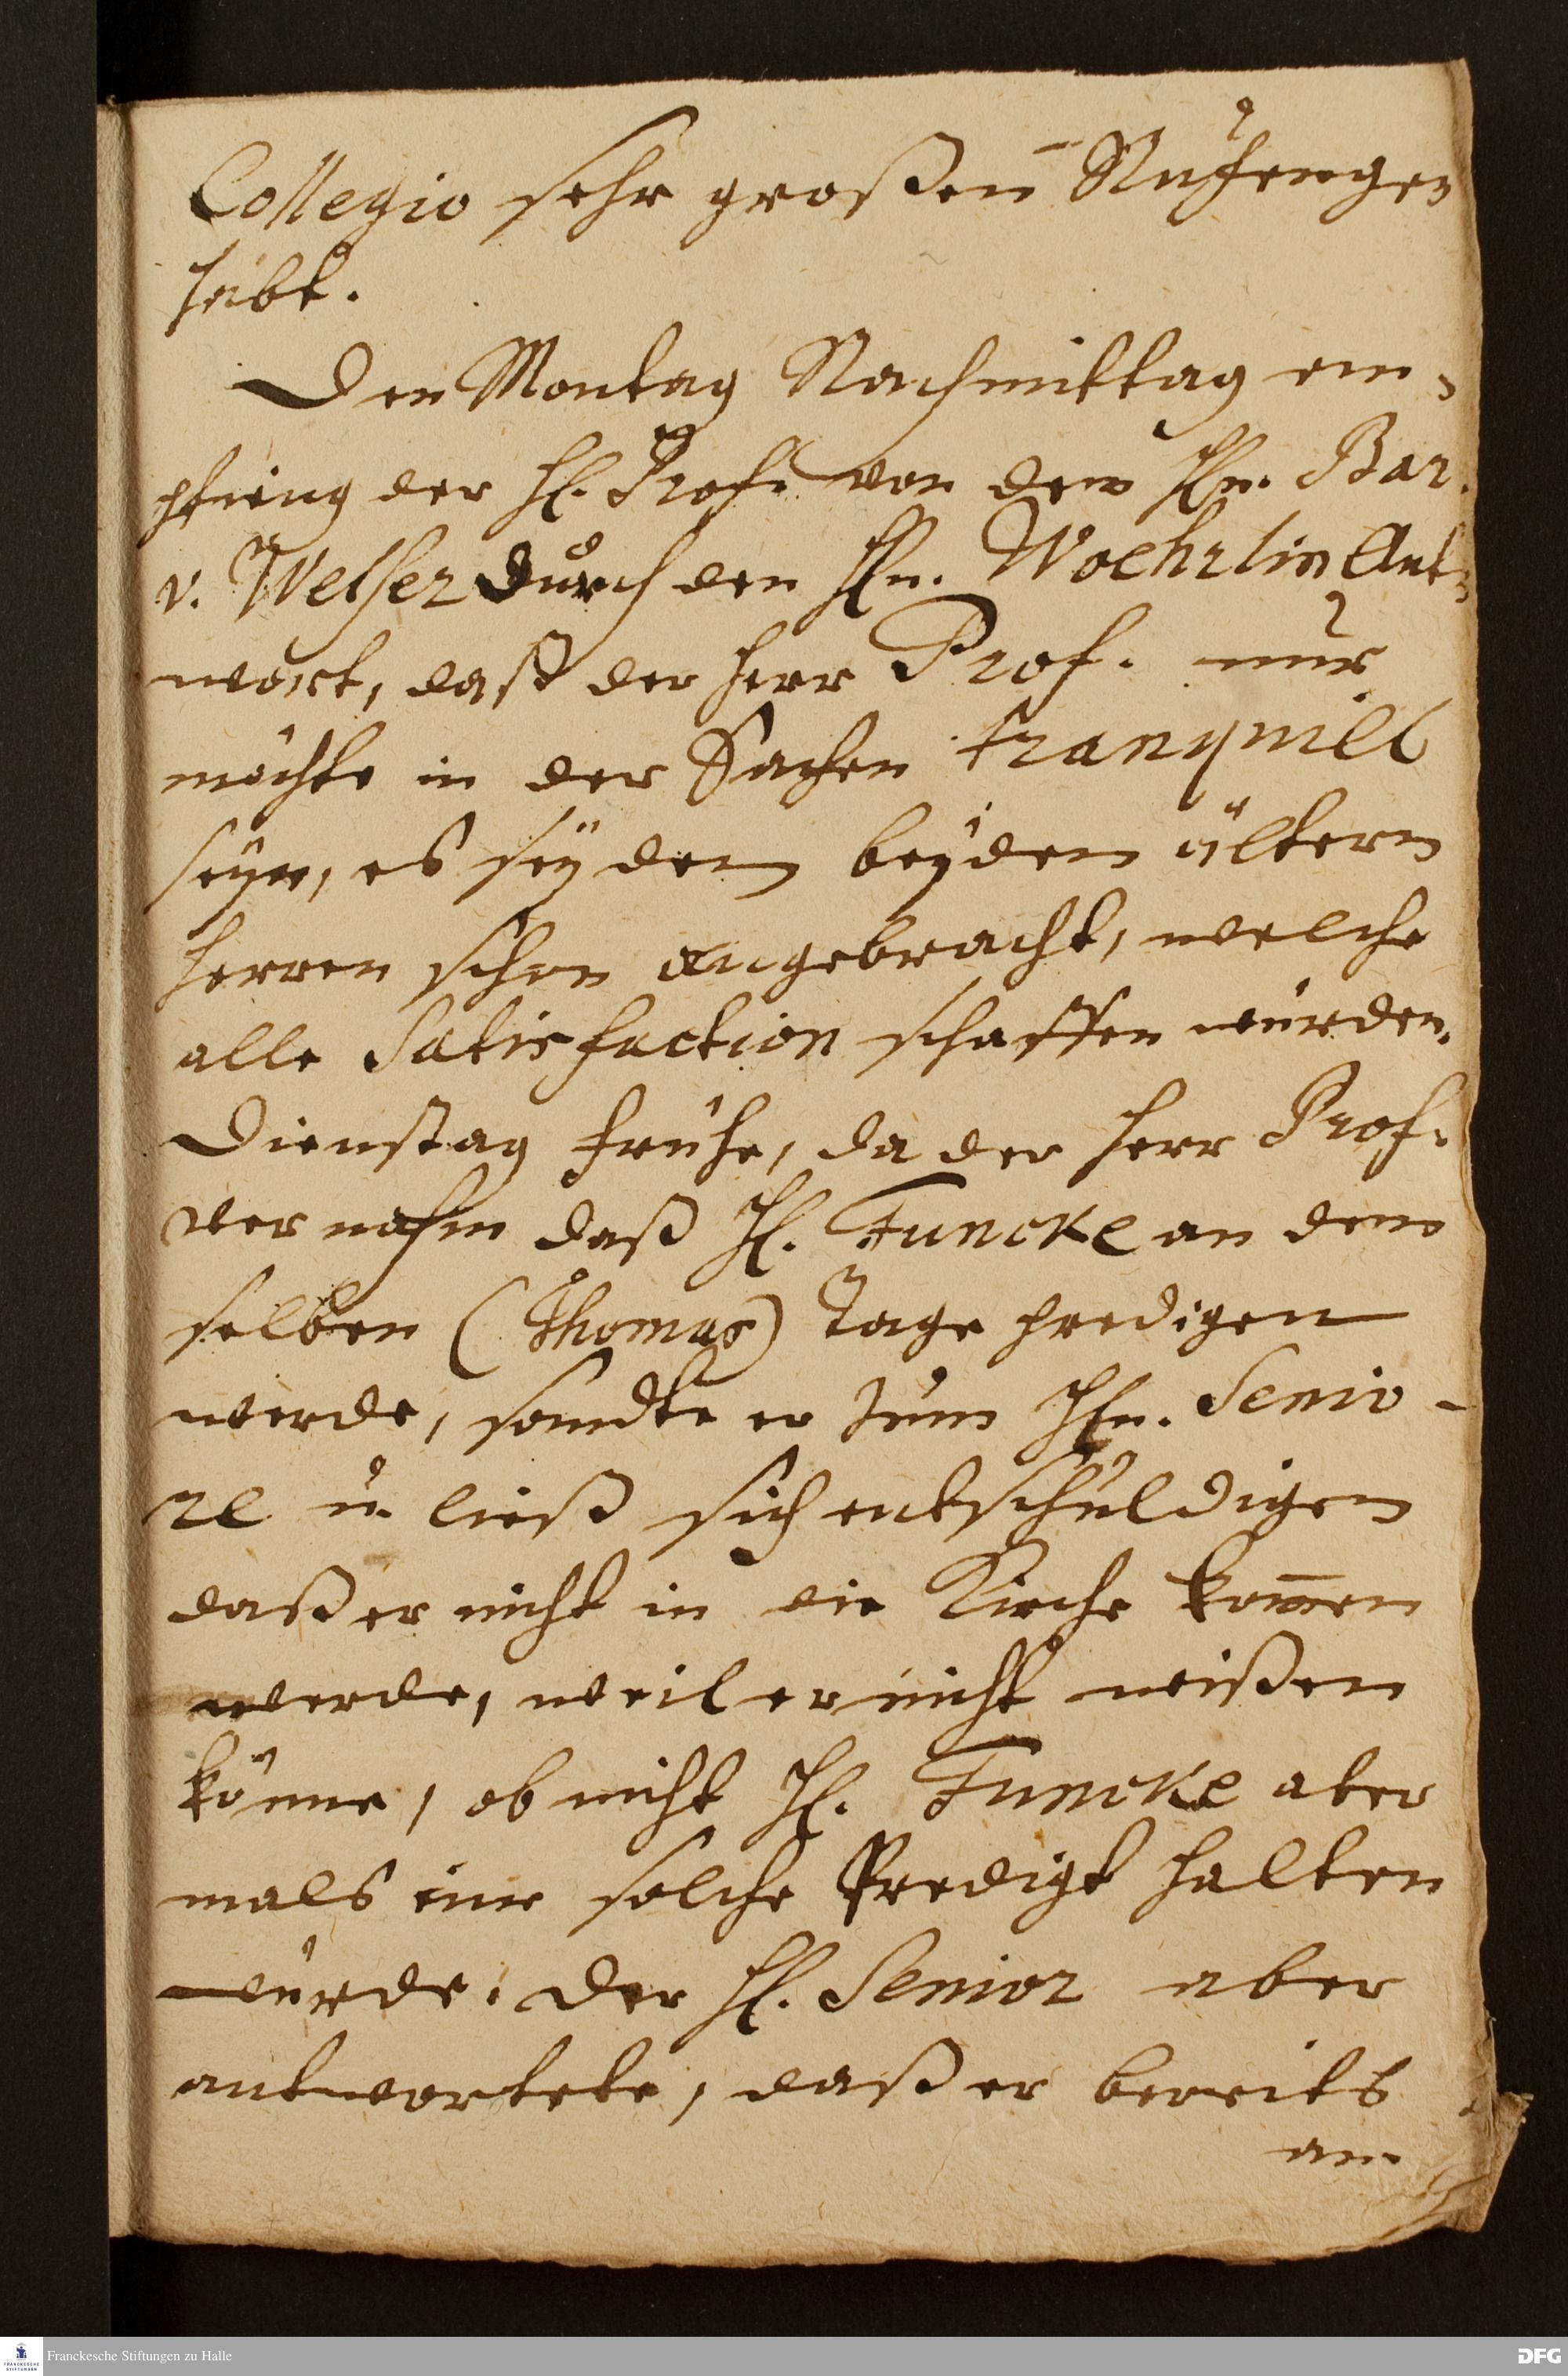 Collegio sehr großen Nutzen ge
habt.
Den Montag Nachmittag em„
pfieng der H. Prof. von dem Hn. Bar.
v. Welser durch den Hn. Woehrlin Ant„
wort, daß der Herr Prof. nur
möchte in der Sachen tranquill
seyn, es sey den beyden ältern
Herren schon angebracht, welche
alle Satisfaction schaffen würden.
Dienstag frühe, da der Herr Prof.
vernahm daß H. Funcke an dem
selben (Thomas) Tage predigen
werde, sandte er zum Hn. Senio-
re u. ließ sich entschuldigen
daß er nicht in die Kirche kom̅en
werde, weil er nicht wißen
könne, ob nicht H. Funcke aber
mals eine solche Predigt halten
würde. Der H. Senior aber
antwortete, daß er bereits
an-
Franckesche Stiftungen zu Halle
DFG